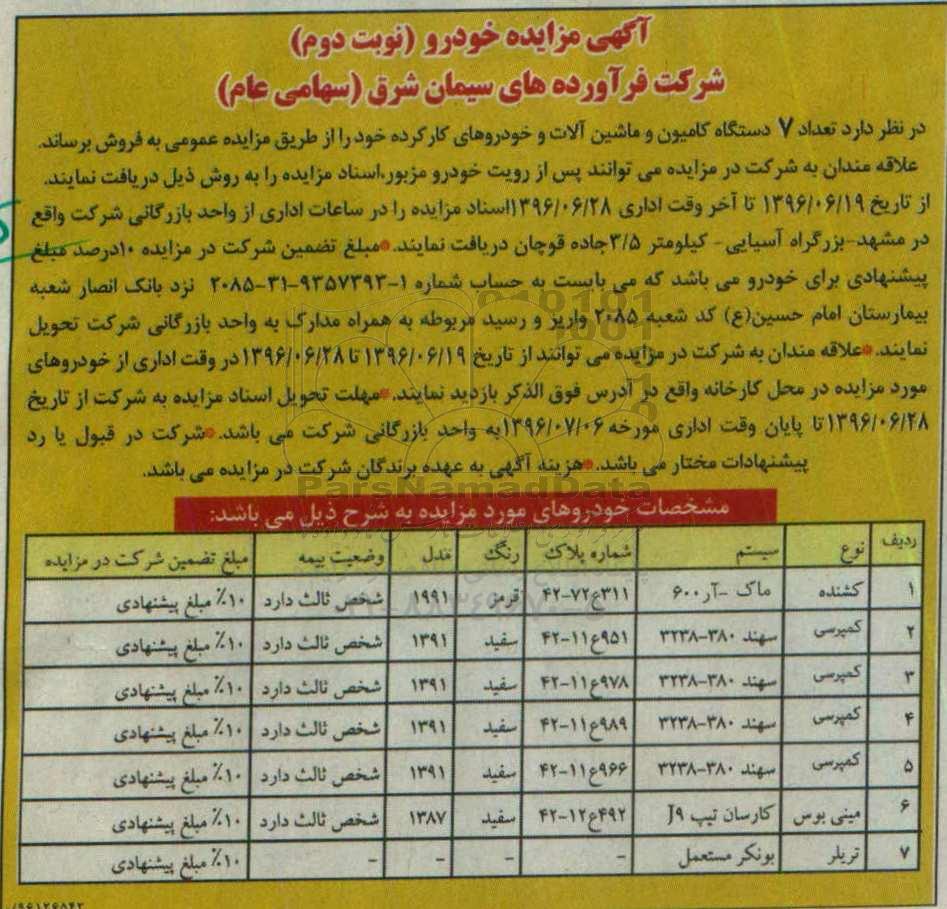 آگهی مزایده خودرو (نوبت دوم)
شرکت فرآورده های سیمان شرق (سهامی عام)
در نظر دارد تعداد ۷ دستگاه کامیون و ماشین آلات و خودروهای کارکرده خود را از طریق مزایده عمومی به فروش برساند.
علاقه مندان به شرکت در مزایده می توانند پس از رویت خودرو مزبور،اسناد مزایده را به روش ذیل دریافت نمایند.
از تاریخ ۱۳۹۶/۰۶/۱۹ تا آخر وقت اداری ۱۳۹۶/۰۶/۲۸اسناد مزایده را در ساعات اداری از واحد بازرگانی شرکت واقع
در مشهد-بزرگراه آسیایی- کیلومتر ۳/۵جاده قوچان دریافت نمایند.*مبلغ تضمین شرکت در مزایده ۱۰درصد مبلغ
پیشنهادی برای خودرو می باشد که می بایست به حساب شماره ۱-۹۳۵۷۳۹۳-۳۱-۲۰۸۵ نزد بانک انصار شعبه
بیمارستان امام حسین(ع) کد شعبه ۲۰۸۵ واریز و رسید مربوطه به همراه مدارک به واحد بازرگانی شرکت تحویل
نمایند.*علاقه مندان به شرکت در مزایده می توانند از تاریخ ۱۳۹۶/۰۶/۱۹ تا ۱۳۹۶/۰۶/۲۸در وقت اداری از خودروهای
مورد مزایده در محل کارخانه واقع در آدرس فوق الذکر بازدید نمایند.*مهلت تحویل اسناد مزایده به شرکت از تاریخ
۱۳۹۶/۰۶/۲۸تا پایان وقت اداری مورخه ۱۳۹۶/۰۷/۰۶به واحد بازرگانی شرکت می باشد.*شرکت در قبول یا رد
پیشنهادات مختار می باشد.*هزینه آگهی به عهده برندگان شرکت در مزایده می باشد.
ParsNamadData
مشخصات خودروهای مورد مزایده به شرح ذیل می باشد:
ردیف نوع سیستم شماره پلاک رنگ مدل وضعیت بیمه مبلغ تضمین شرکت در مزایده
۱ کشنده ماک -آر۶۰۰ ۳۱۱ع۷۲-۴۲ قرمز ۱۹۹۱ شخص ثالث دارد ۱۰٪ مبلغ پیشنهادی
۲ کمپرسی سهند ۳۸۰-۳۲۳۸ ۹۵۱ع۱۱-۴۲ سفید ۱۳۹۱ شخص ثالث دارد ۱۰٪ مبلغ پیشنهادی
۳ کمپرسی سهند ۳۸۰-۳۲۳۸ ۹۷۸ع۱۱-۴۲ سفید ۱۳۹۱ شخص ثالث دارد ۱۰٪ مبلغ پیشنهادی
۴ کمپرسی سهند ۳۸۰-۳۲۳۸ ۹۸۹ع۱۱-۴۲ سفید ۱۳۹۱ شخص ثالث دارد ۱۰٪ مبلغ پیشنهادی
۵ کمپرسی سهند ۳۸۰-۳۲۳۸ ۹۶۶ع۱۱-۴۲ سفید ۱۳۹۱ شخص ثالث دارد ۱۰٪ مبلغ پیشنهادی
۶ مینی بوس کارسان تیپ J۹ ۴۹۲ع۱۲-۴۲ سفید ۱۳۸۷ شخص ثالث دارد ۱۰٪ مبلغ پیشنهادی
۷ تریلر بونکر مستعمل - - - - ۱۰٪ مبلغ پیشنهادی